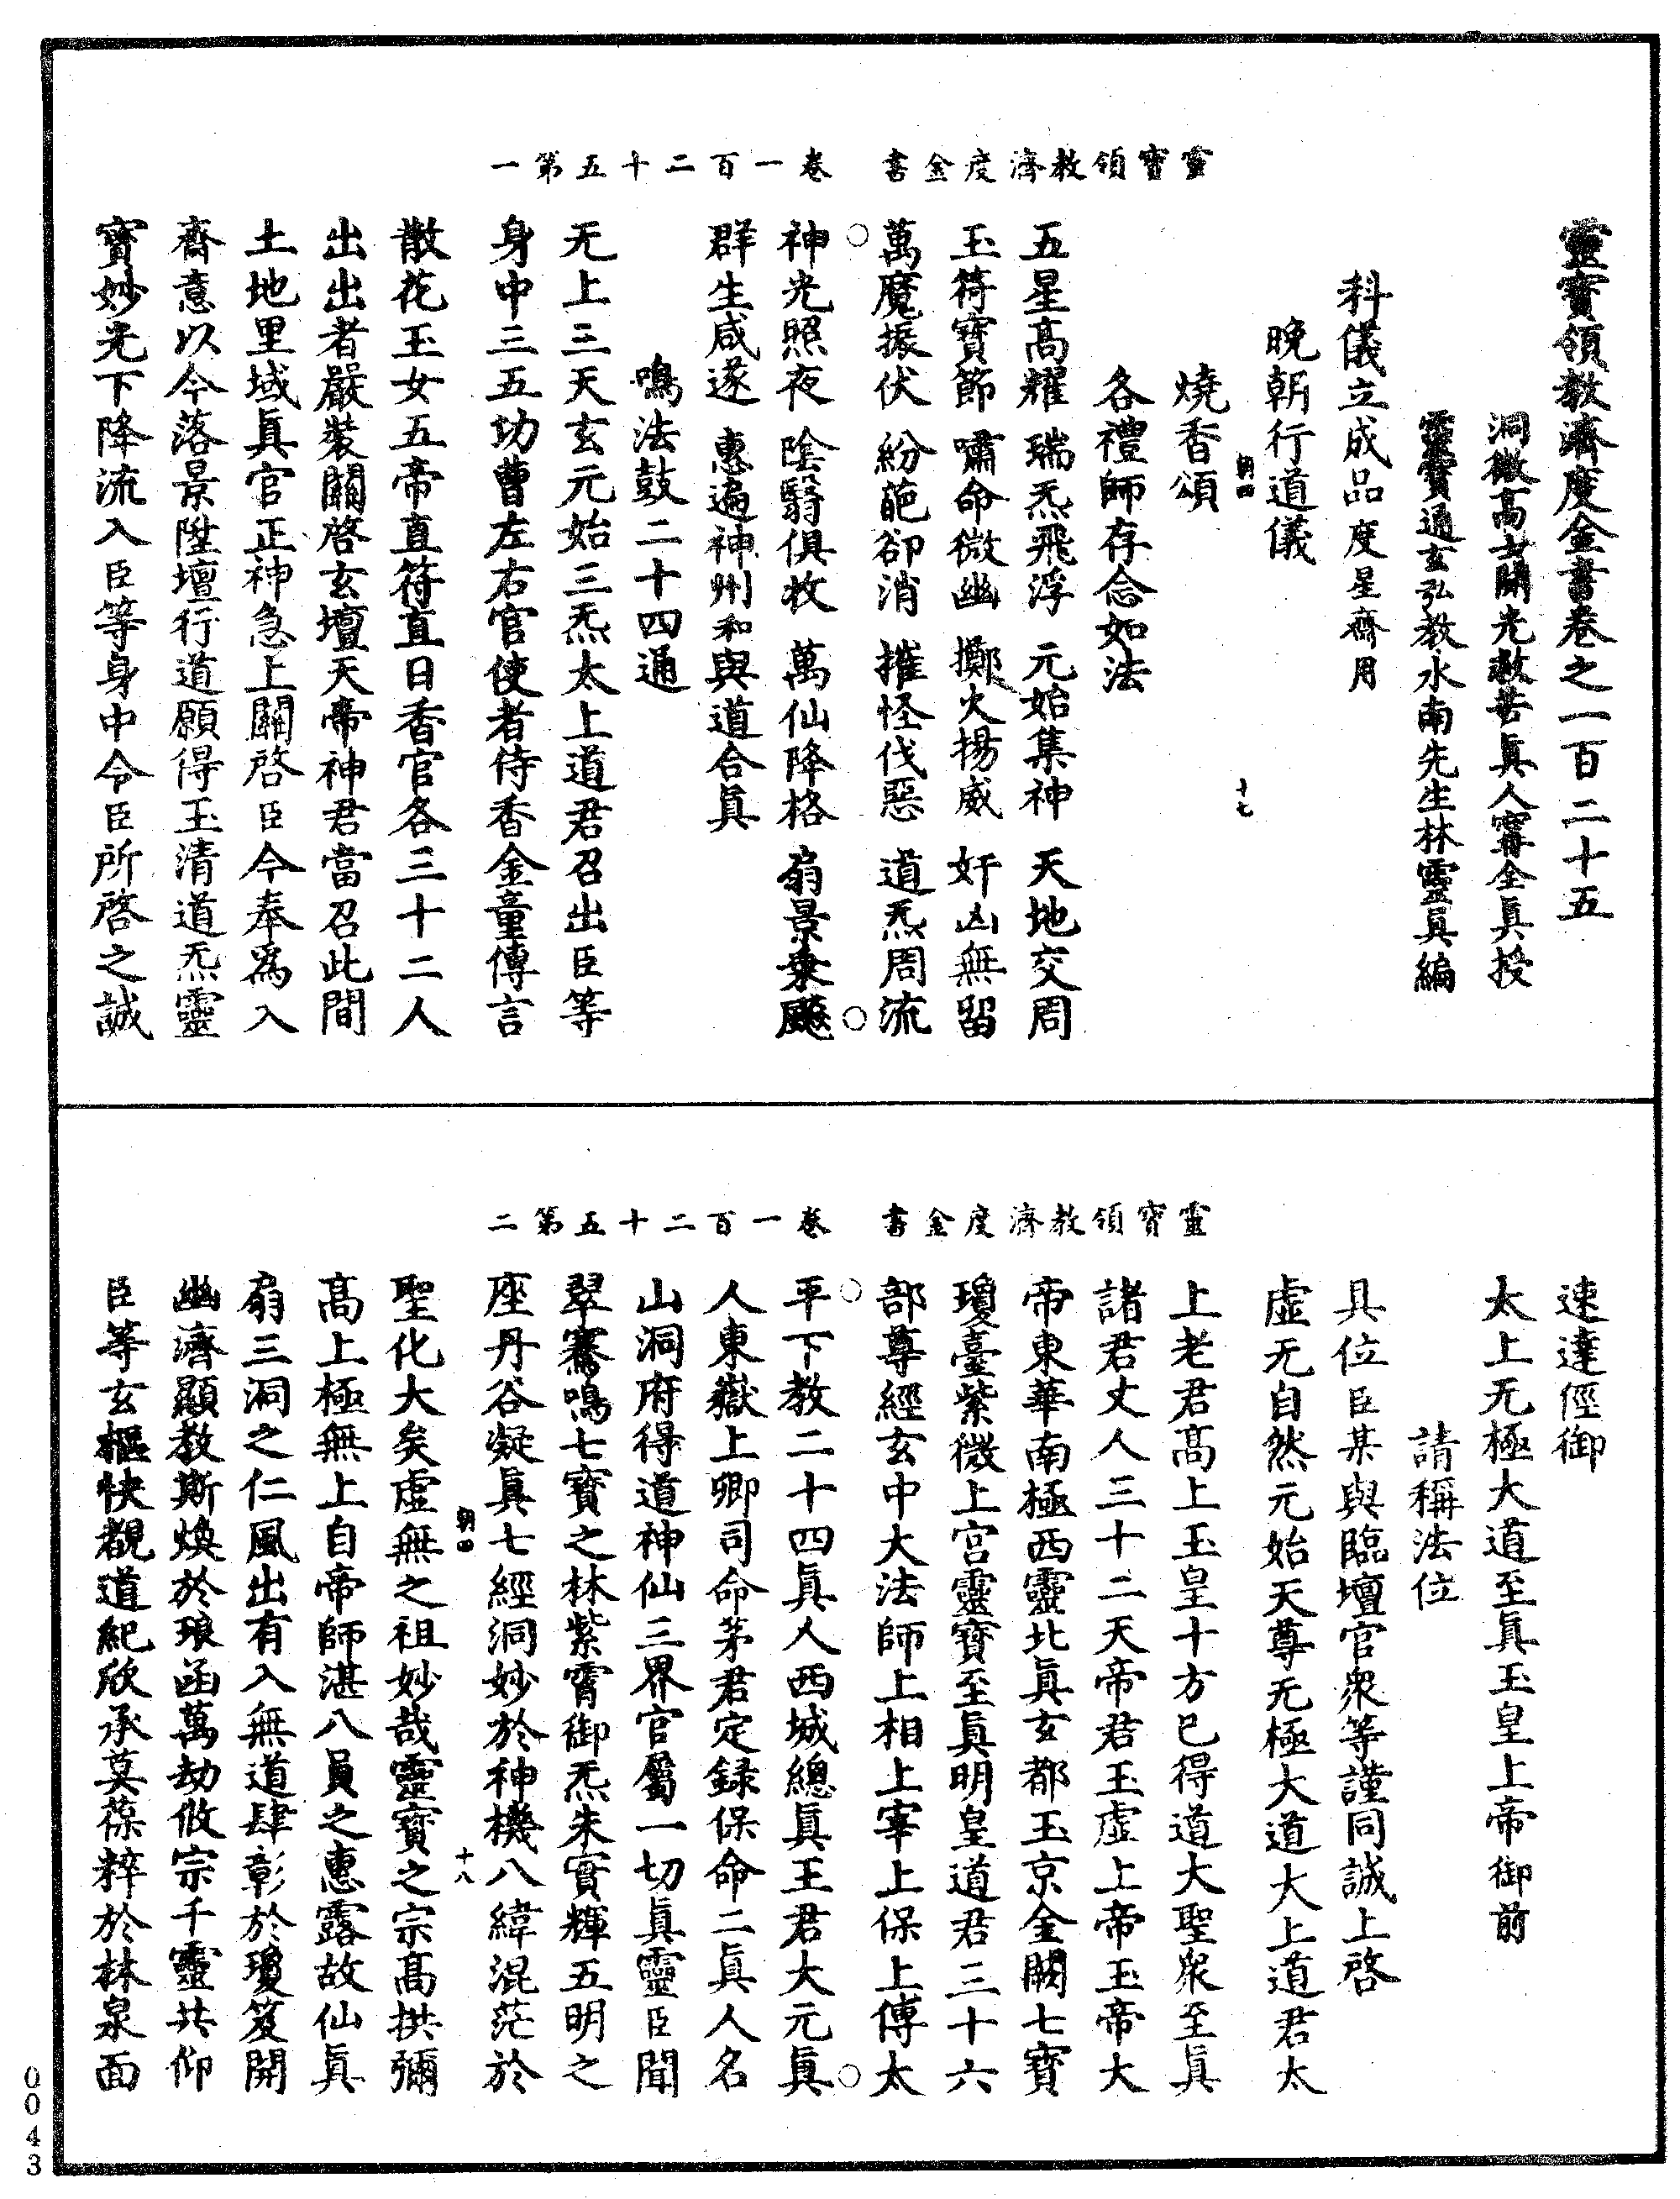 靈寶領教濟度金書　卷一百二十五第一
靈寶領教濟度金書卷之一百二十五
洞微高士開光救苦眞人甯全眞授
靈寶通玄弘教水南先生林靈眞編
科儀立成品度星齋用
晚朝行道儀
朝四　十七
燒香頌
各禮師存念如法
五星高耀　瑞炁飛浮　元始集神　天地交周
玉符寶節　嘯命微幽　擲火揚威　奸凶無留
萬魔振伏　紛葩卻消　摧怪伐惡　道炁周流
神光照夜　陰翳俱收　萬仙降格　扇景乗飈
群生咸遂　惠遍神州　和與道合眞
鳴法鼓二十四通
无上三天玄元始三炁太上道君召出臣等
身中三五功曹左右官使者侍香金童傳言
散花玉女五帝直符直日香官各三十二人
出出者嚴裝關啓玄壇天帝神君當召此間
土地里域眞官正神急上關啓臣今奉爲入
齋意以今落景陞壇行道願得玉清道炁靈
寶妙光下降流入臣等身中令臣所啓之誠
靈寶領教濟度金書　卷一百二十五第二
速達徑御
太上无極大道至眞玉皇上帝御前
請稱法位
具位臣某與臨壇官衆等謹同誠上啓
虛无自然元始天尊无極大道大上道君太
上老君高上玉皇十方已得道大聖衆至眞
諸君丈人三十二天帝君玉虛上帝玉帝大
帝東華南極西靈北眞玄都玉京金闕七寶
瓊臺紫微上宮靈寶至眞明皇道君三十六
部尊經玄中大法師上相上宰上保上傅太
平下教二十四眞人西城總眞王君大元眞
人東嶽上卿司命茅君定録保命二眞人名
山洞府得道神仙三界官屬一切眞靈臣聞
翠騫鳴七寶之林紫霄御炁朱實輝五明之
座丹谷凝眞七經洞妙於神機八緯混茫於
朝四　十八
聖化大矣虛無之祖妙哉靈寶之宗高拱彌
高上極無上自帝師湛八員之惠露故仙眞
扇三洞之仁風出有入無道肆彰於瓊笈開
幽濟顯教斯煥於琅函萬劫攸宗千靈共仰
臣等玄樞快覩道紀欣承莫葆粹於林泉面